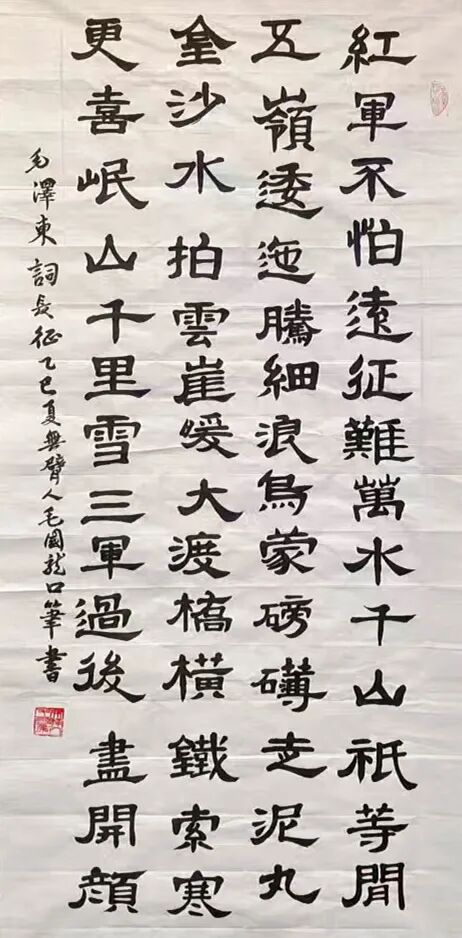 紅軍不怕遠征難萬水千山祇等閒
五嶺逶迤騰細浪烏蒙磅礴走泥丸
金沙水拍雲崖煖大渡橋橫鐵索寒
更喜岷山千里雪三軍過後盡開顔
毛澤東詞長征乙巳夏無臂人毛國龍口筆書